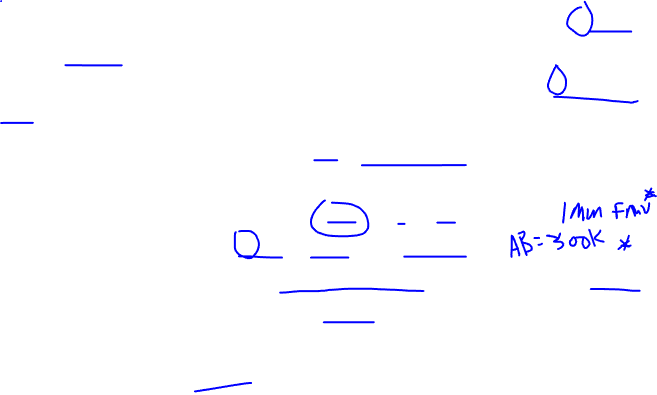 1 Mm FMV*
AB=300K *